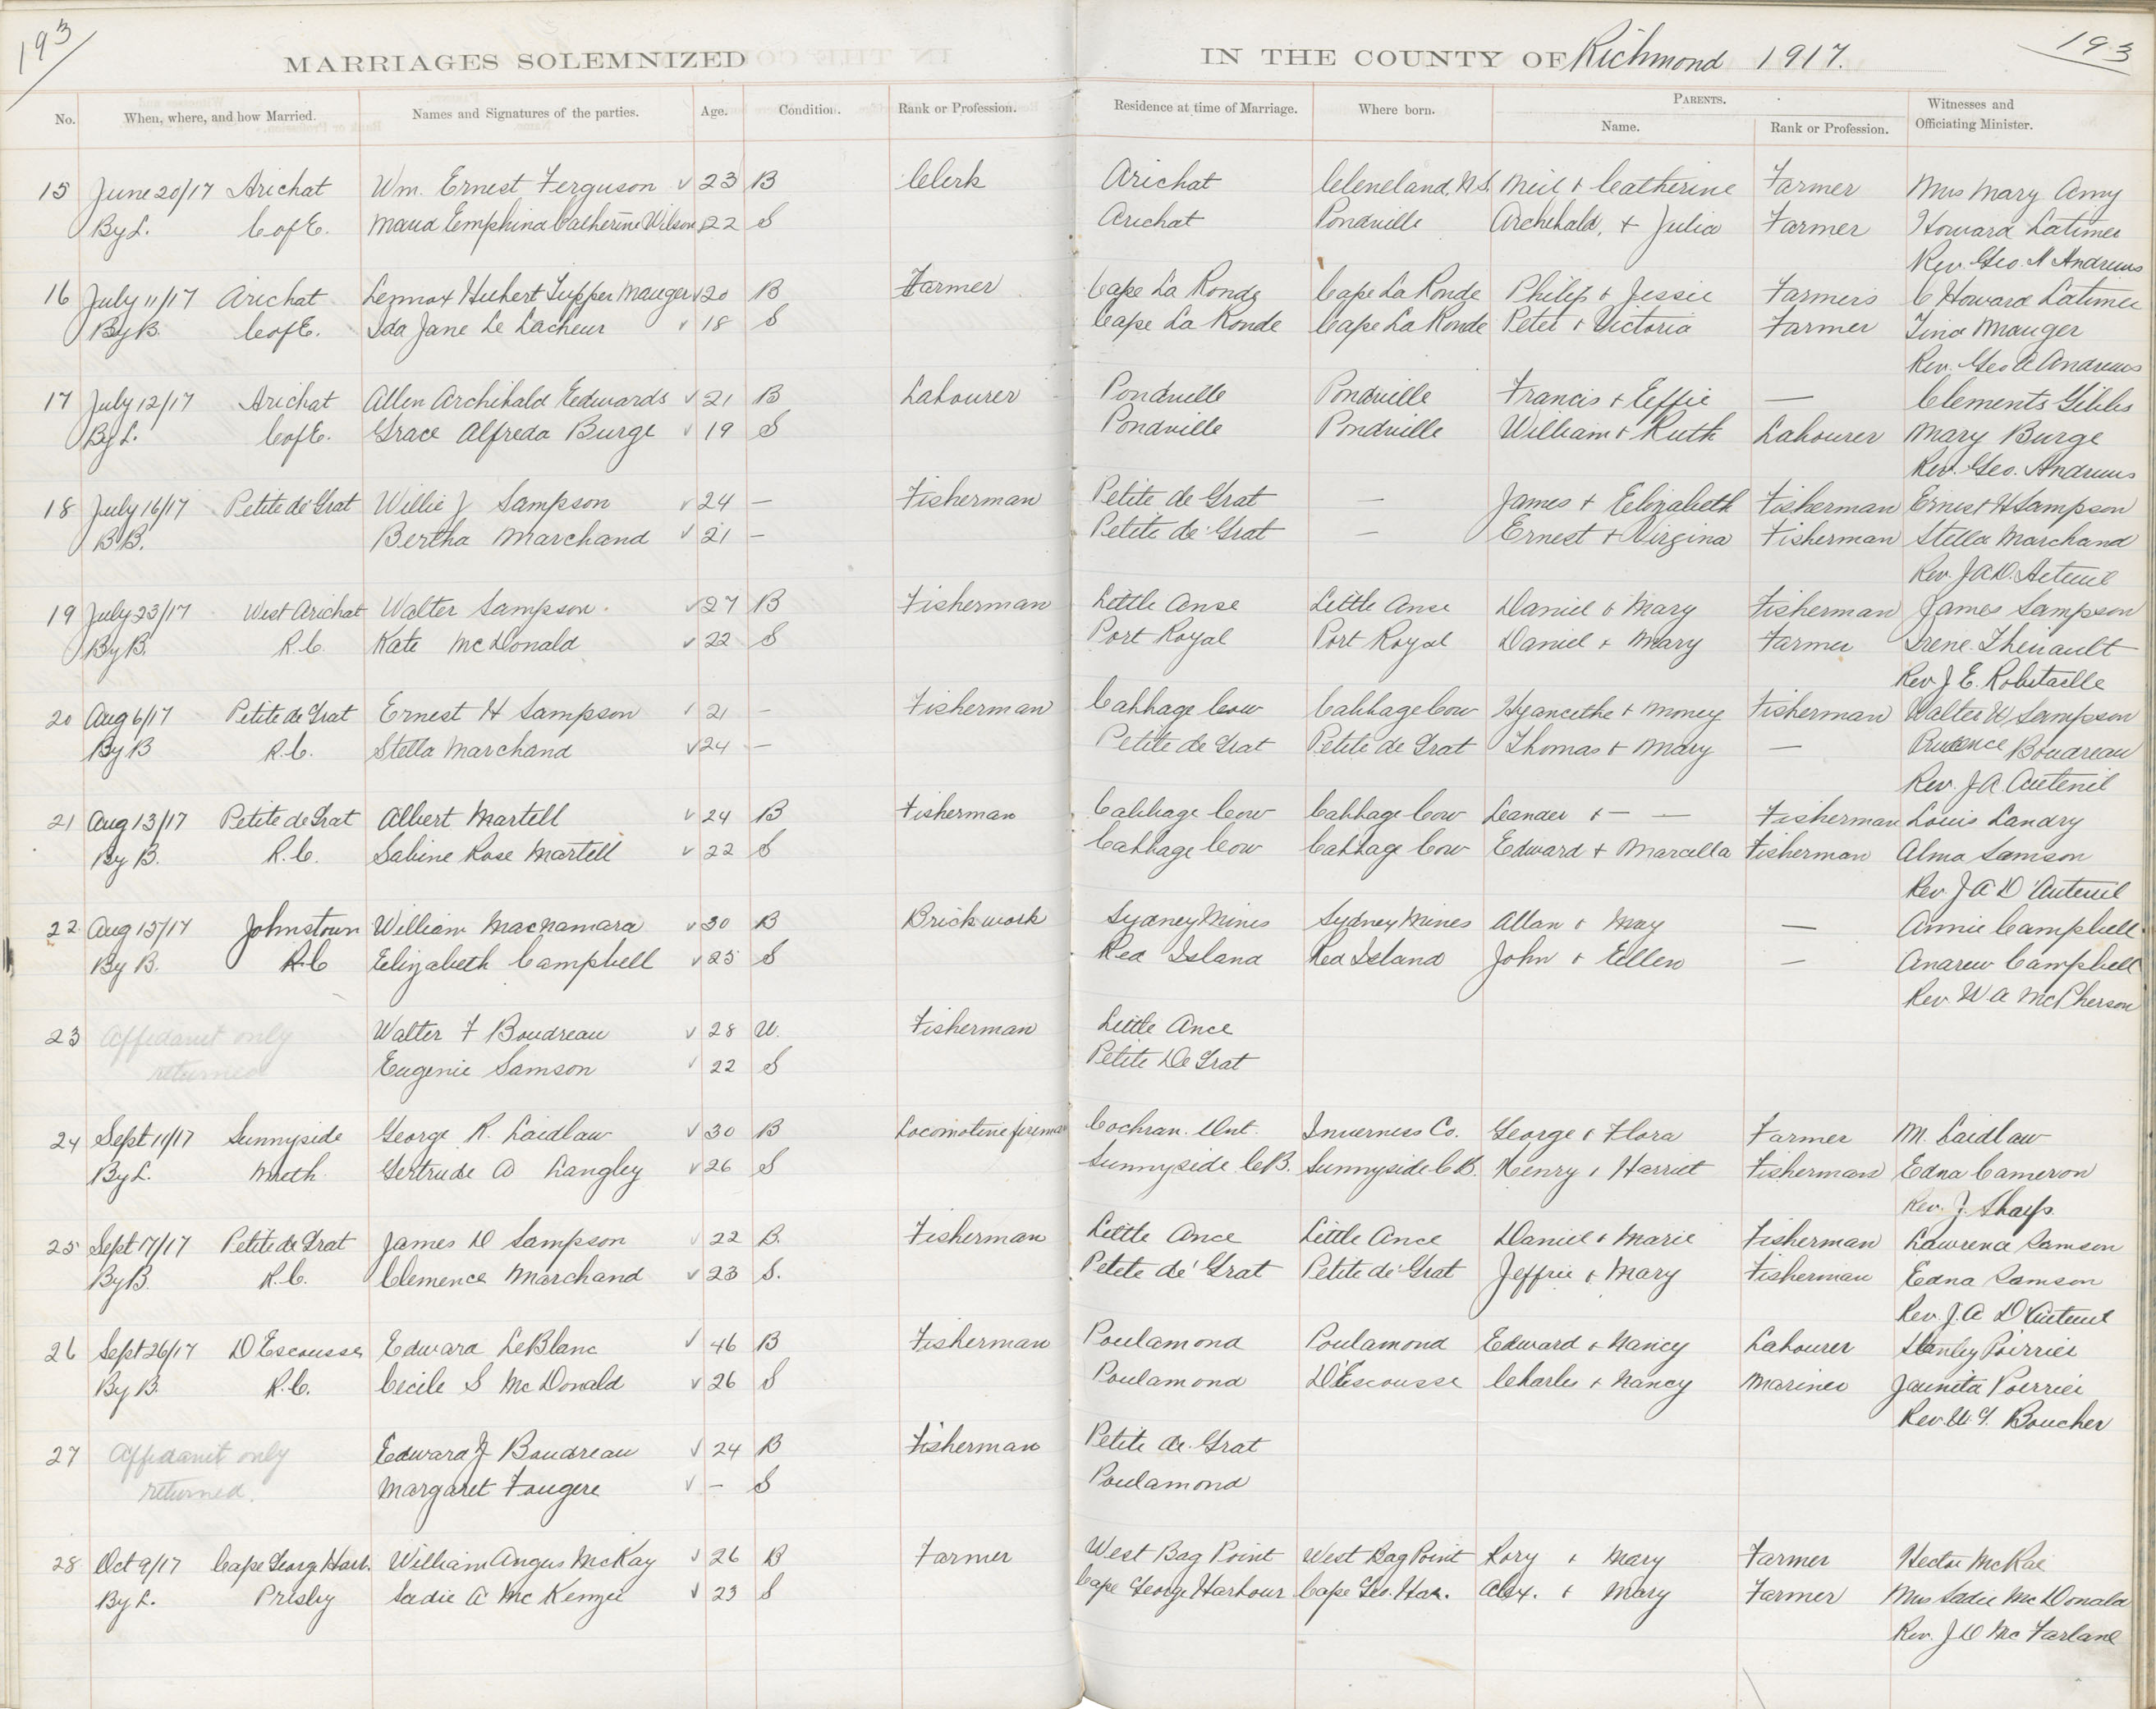 193 193
MARRIAGES SOLEMNIZED IN THE COUNTY OF Richmond 1917.
No. When, where, and how Married. Names and Signatures of the parties. Age. Condition. Rank or Profession. Residence at time of Marriage. Where born. PARENTS. Name. Rank or Profession. Witnesses and Officiating Minister.
15 June 20/17 Arichat Wm. Ernest Ferguson 23 B Clerk Arichat Cleveland, N.S. Neil + Catherine Farmer Mrs Mary Amy
By L. C of E. Maud Emphina Catherine Wilson 22 S Arichat Pondville Archibald, + Julia Farmer Howard Latimer
Rev. Geo. Andrews
16 July 11/17 Arichat Lennox Hubert Tupper Mauger 20 B Farmer Cape La Ronde Cape La Ronde Philip + Jessie Farmers C Howard Latimer
By B. C of E. Ida Jane Le Lacheur 18 S Cape La Ronde Cape La Ronde Peter + Victoria Farmer Tina Mauger
Rev. Geo Andrews
17 July 12/17 Arichat Allen Archibald Edwards 21 B Labourer Pondville Pondville Francis + Effie — Clements Gibbs
By L. C of E. Grace Alfreda Burge 19 S Pondville Pondville William + Ruth Labourer Mary Burge
Rev. Geo. Andrews
18 July 16/17 Petite de Grat Willie J Sampson 24 — Fisherman Petite de Grat — James + Elizabeth Fisherman Ernest H Sampson
B B. Bertha Marchand 21 — Petite de Grat — Ernest + Virgina Fisherman Stella Marchand
Rev. J A D. Auteuil
19 July 23/17 West Arichat Walter Sampson. 27 B Fisherman Little Anse Little Anse Daniel & Mary Fisherman James Sampson
By B. R.C. Kate McDonald 22 S Port Royal Port Royal Daniel + Mary Farmer Irene Theriault
Rev J E. Robitaille
20 Aug 6/17 Petite de Grat Ernest H Sampson 21 — Fisherman Cabbage Cow Cabbage Cow Hyancithe + Money Fisherman Walter W Sampson
By B R.C. Stella Marchand 24 — Petite de Grat Petite de Grat Thomas + Mary — Prudence Boudreau
Rev. J A. Auteuil
21 Aug 13/17 Petite de Grat Albert Martell 24 B Fisherman Cabbage Cow Cabbage Cow Leander + — — Fisherman Louis Landry
By B. R.C. Sabine Rose Martell 22 S Cabbage Cow Cabbage Cow Edward + Marcella Fisherman Alma Samson
Rev. J A D'Auteuil
22 Aug 15/17 Johnstown William Macnamara 30 B Brick work Sydney Mines Sydney Mines Allan & May — Annie Campbell
By B. R.C Elizabeth Campbell 25 S Red Island Red Island John + Ellen — Andrew Campbell
Rev W A McPherson
23 Affidavit only Walter F Boudreau 28 W. Fisherman Little Ance
returned Eugenie Samson 22 S Petite De Grat
24 Sept 11/17 Sunnyside George R. Laidlaw 30 B Locomotive fireman Cochran. Ont. Inverness Co. George & Flora Farmer M. Laidlaw
By L. Meth. Gertrude A Langley 26 S Sunnyside C.B. Sunnyside C.B. Henry & Harriet Fisherman Edna Cameron
Rev. J. Sharp.
25 Sept 17/17 Petite de Grat James D Sampson 22 B. Fisherman Little Ance Little Ance Daniel & Marie Fisherman Lawrence Samson
By B. R.C. Clemence Marchand 23 S. Petete de Grat Petite de Grat Jeffrie & Mary Fisherman Edna Samson
Rev. J. A D'Auteuil
26 Sept 26/17 D'Escousse Edward LeBlanc 46 B Fisherman Poulamond Poulamond Edward & Nancy Labourer Stanley Poirrier
By B. R.C. Cecile S McDonald 26 S Poulamond D'Escousse Charles + Nancy Mariner Jaunita Poirrier
Rev. Boucher
27 Affidavit only Edward J Boudreau 24 B Fisherman Petite de Grat
returned. Margaret Fougere — S Poulamond
28 Oct 9/17 Cape George Harb. William Angus McKay 26 B Farmer West Bag Point West Bag Point Rory & Mary Farmer Hector McRae
By L. Presby Sadie A McKenzie 23 S Cape George Harbour Cape Geo. Har. Alex. & Mary Farmer Mrs Sadie McDonald
Rev. J D McFarlane